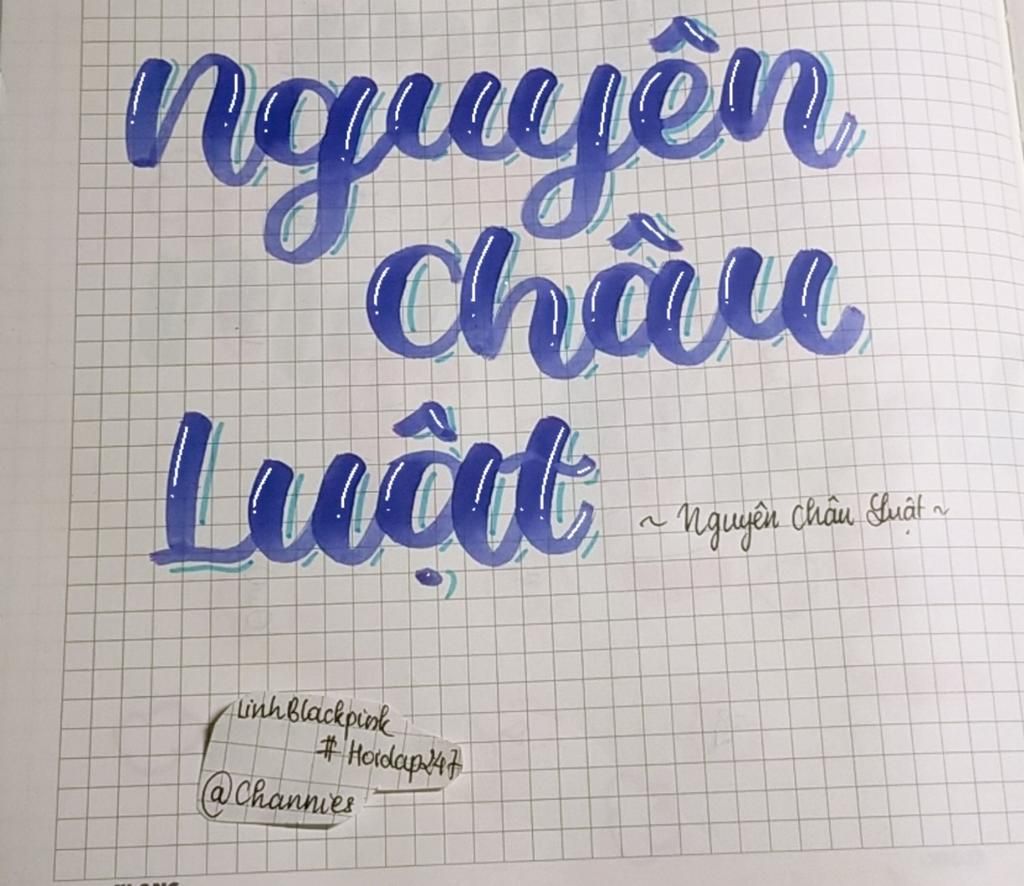 Nguyên
Châu
Luật
~ Nguyên Châu Luật ~
LinhBlackpink
# Hoidap247
@Channies